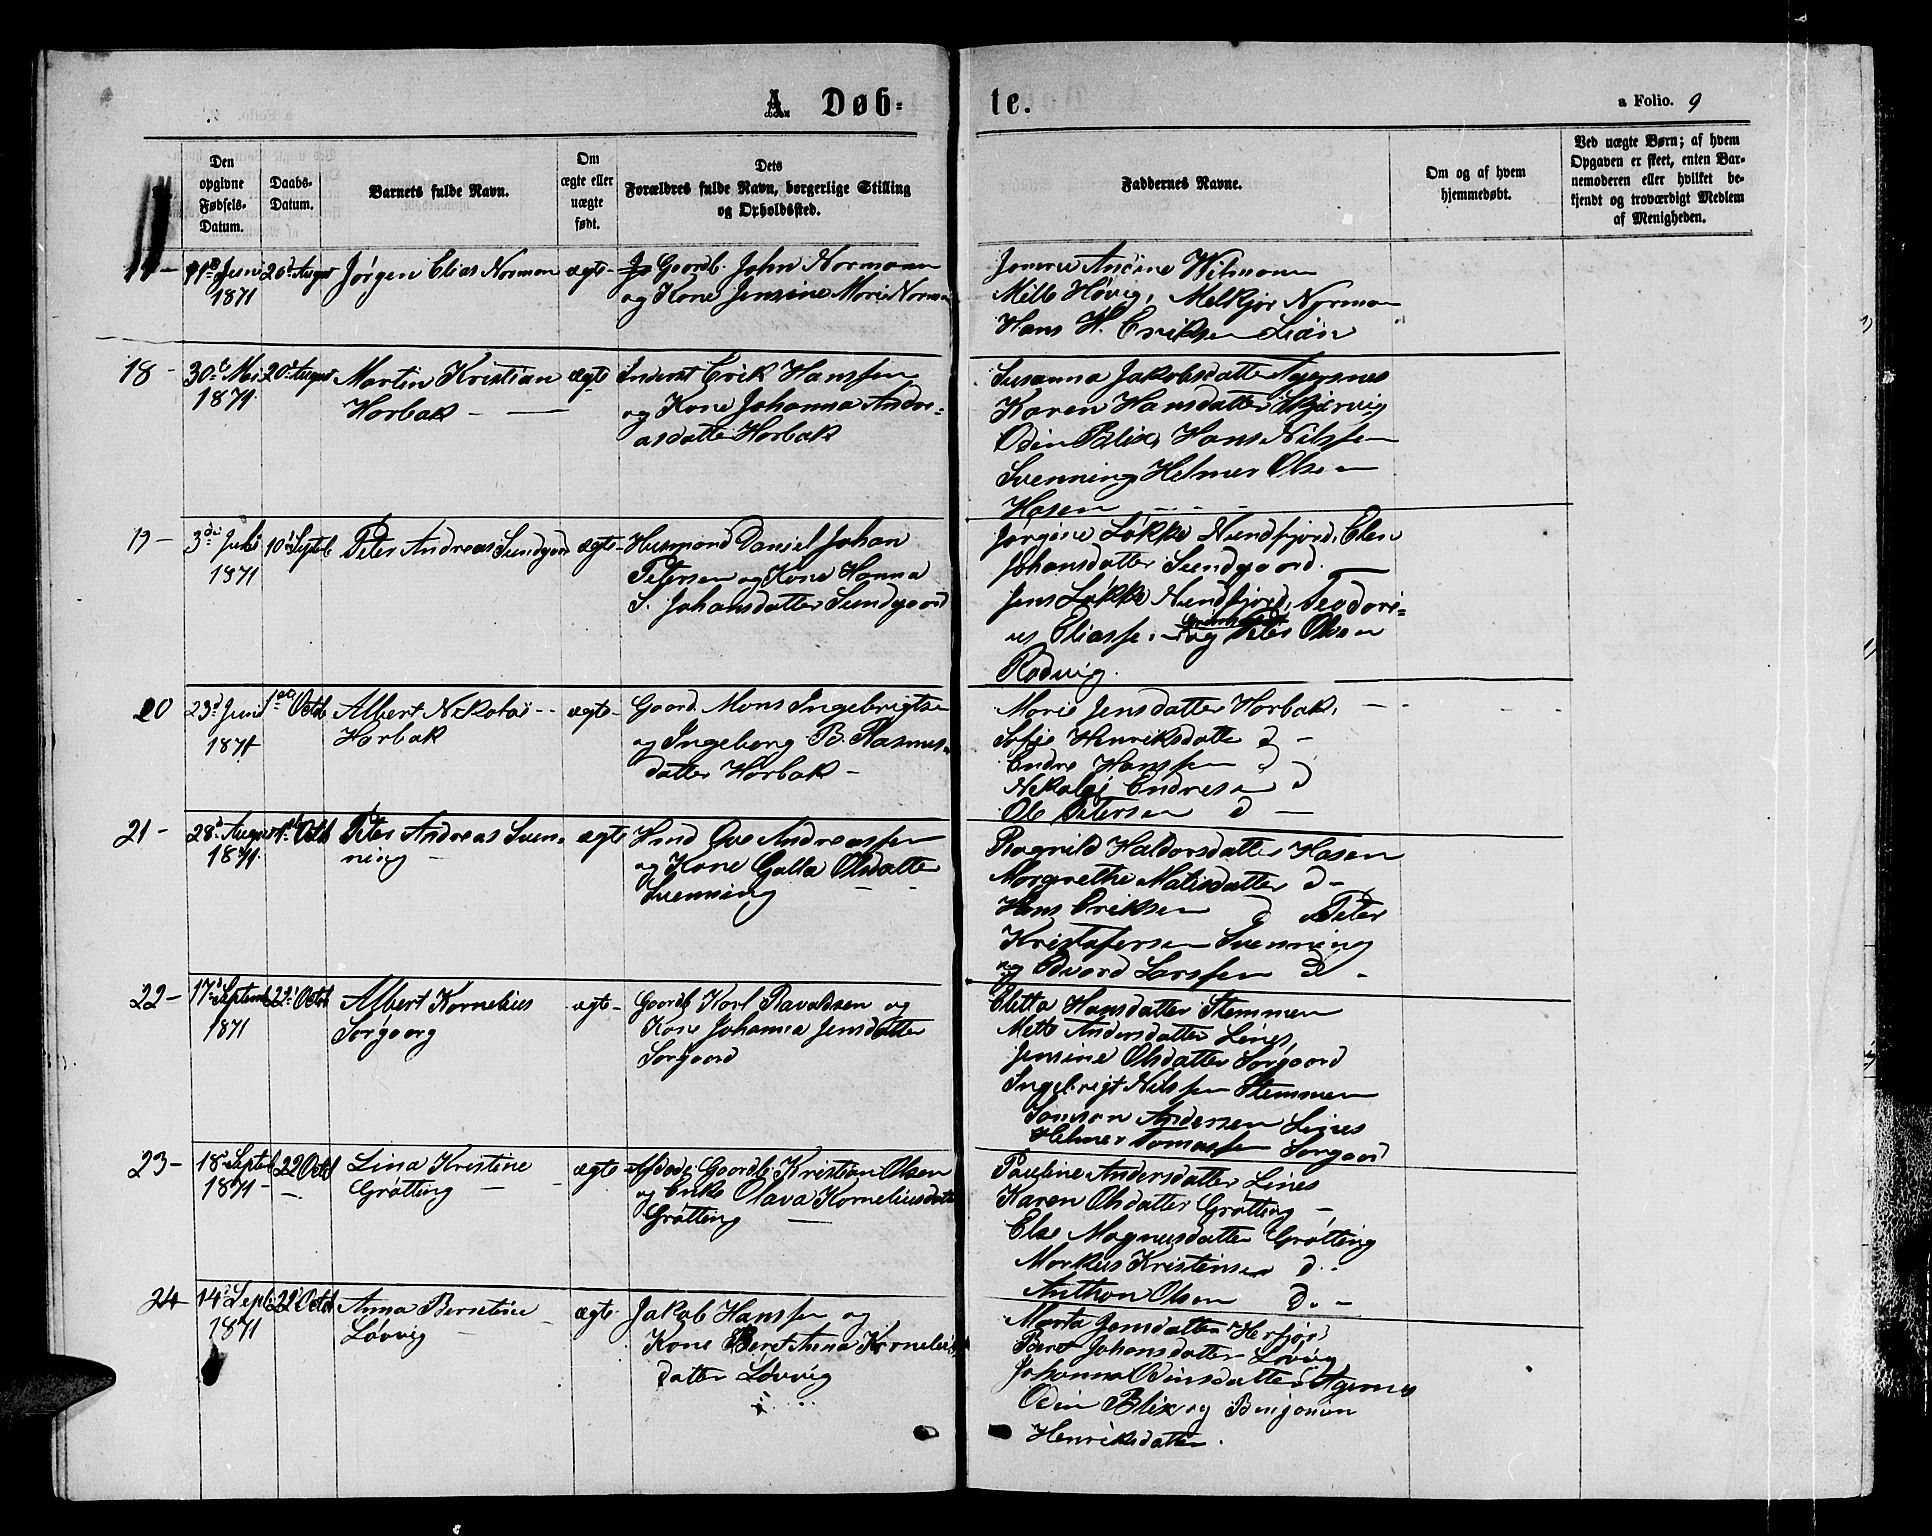 A. Døb-
te.
a Folio. 9
Den opgivne Fødsels-Datum.
Daabs-Datum.
Barnets fulde Navn.
Om ægte eller uægte født.
Dets Forældres fulde Navn, borgerlige Stilling og Opholdssted.
Faddernes Navne.
Om og af hvem hjemmedøbt.
Ved uægte Børn; af hvem Opgaven er skeet, enten Barnemoderen eller hvilket bekjendt og troværdigt Medlem af Menigheden.
Juni 20d August Jørgen Elias Norman ægte- Gaardb. John Normann
1871 og Kone Jensine Marie Norman
Ancine Wilmann
Høvig, Melkjor Norman
Hans H. Eriksen Lian
18 - 30te Mai 20d August Martin Kristian ægte Inderst Erik Hanssen
1871 Harbak - og Kone Johanna Andor=
asdatter Harbak
Susanna Jakobsdatter Agersnes
Karen Hansdatter Skjærvig
Odin Blix, Hans Nilssen
Svenning, Helmer Olsen
Hosen
19 - 3de Juli 10d Septeb Peter Andreas Sundgaard ægte- Husmand Daniel Johan
1871 Petersen og Kone Hanna
S. Johansdatter Sundgaard
Jørgine Løkke Nundfjord, Elen
Johansdatter Sundgaard.
Jens Løkke Nundfjord, Teodori=
us Eliassen og Peter Olsen
Rødvig.
20 23d Juni 1ste Octob Albert Nikolai - ægte- Gaard. Mons Ingebrigtsen
1871 Harbak og Ingeborg B. Rasmus=
datter Harbak -
Marie Jensdatter Harbak,
Sofie Henriksdatter d -
Endre Hanssen d
Nekolai Endresen d
Ole Petersen d -
21 - 28d August 1ste Octob Peter Andreas Sven- ægte Hmd Ove Andreassen
1871. ning - og Kone Golla Olsdatter
Svenning
Ragnild Haldorsdatter Hosen
Margrethe Matisdatter d -
Hans Eriksen d Peter
Kristofersen Svenning
og Edvard Larssen d -
22 - 17d Septemb 22d Octob Albert Kornelius ægte- Gaardb Karl Ravaldsen og
1871 Sørgaard Kone Johanna Jensdatter
Sørgaard
Eletta Hansdatter Stemmen
Mette Andersdatter Lines,
Jensine Olsdatter Sørgaard
Ingebrigt Nilssen Stemmen
Andersen Lines
Helmer Tomassen Sørgaard
23 - 18d Septeb 22 Octob Lina Kristine ægte Afdøde Gaardb. Kristian Olsen
1871 - Grøtting - og Enke Olava Korneliusdatter
Grøtting -
Pauline Andersdatter Lines
Karen Olsdatter Grøtting -
Else Magnusdatter Grøtting
Markus Kristensen d -
Anthon Olsen d. -
24 14d Sept. 22d Octob Anna Berntine ægte- Jakob Hanssen og
1871 Løvvig - Kone Beret Anna Kornelius
datter Løvvig
Marta Jensdatter Herfjord
Beret Johansdatter Løvvig
Johanna Odinsdatter Agernes
Odin Blix og Benjamin
Henriksdatter.